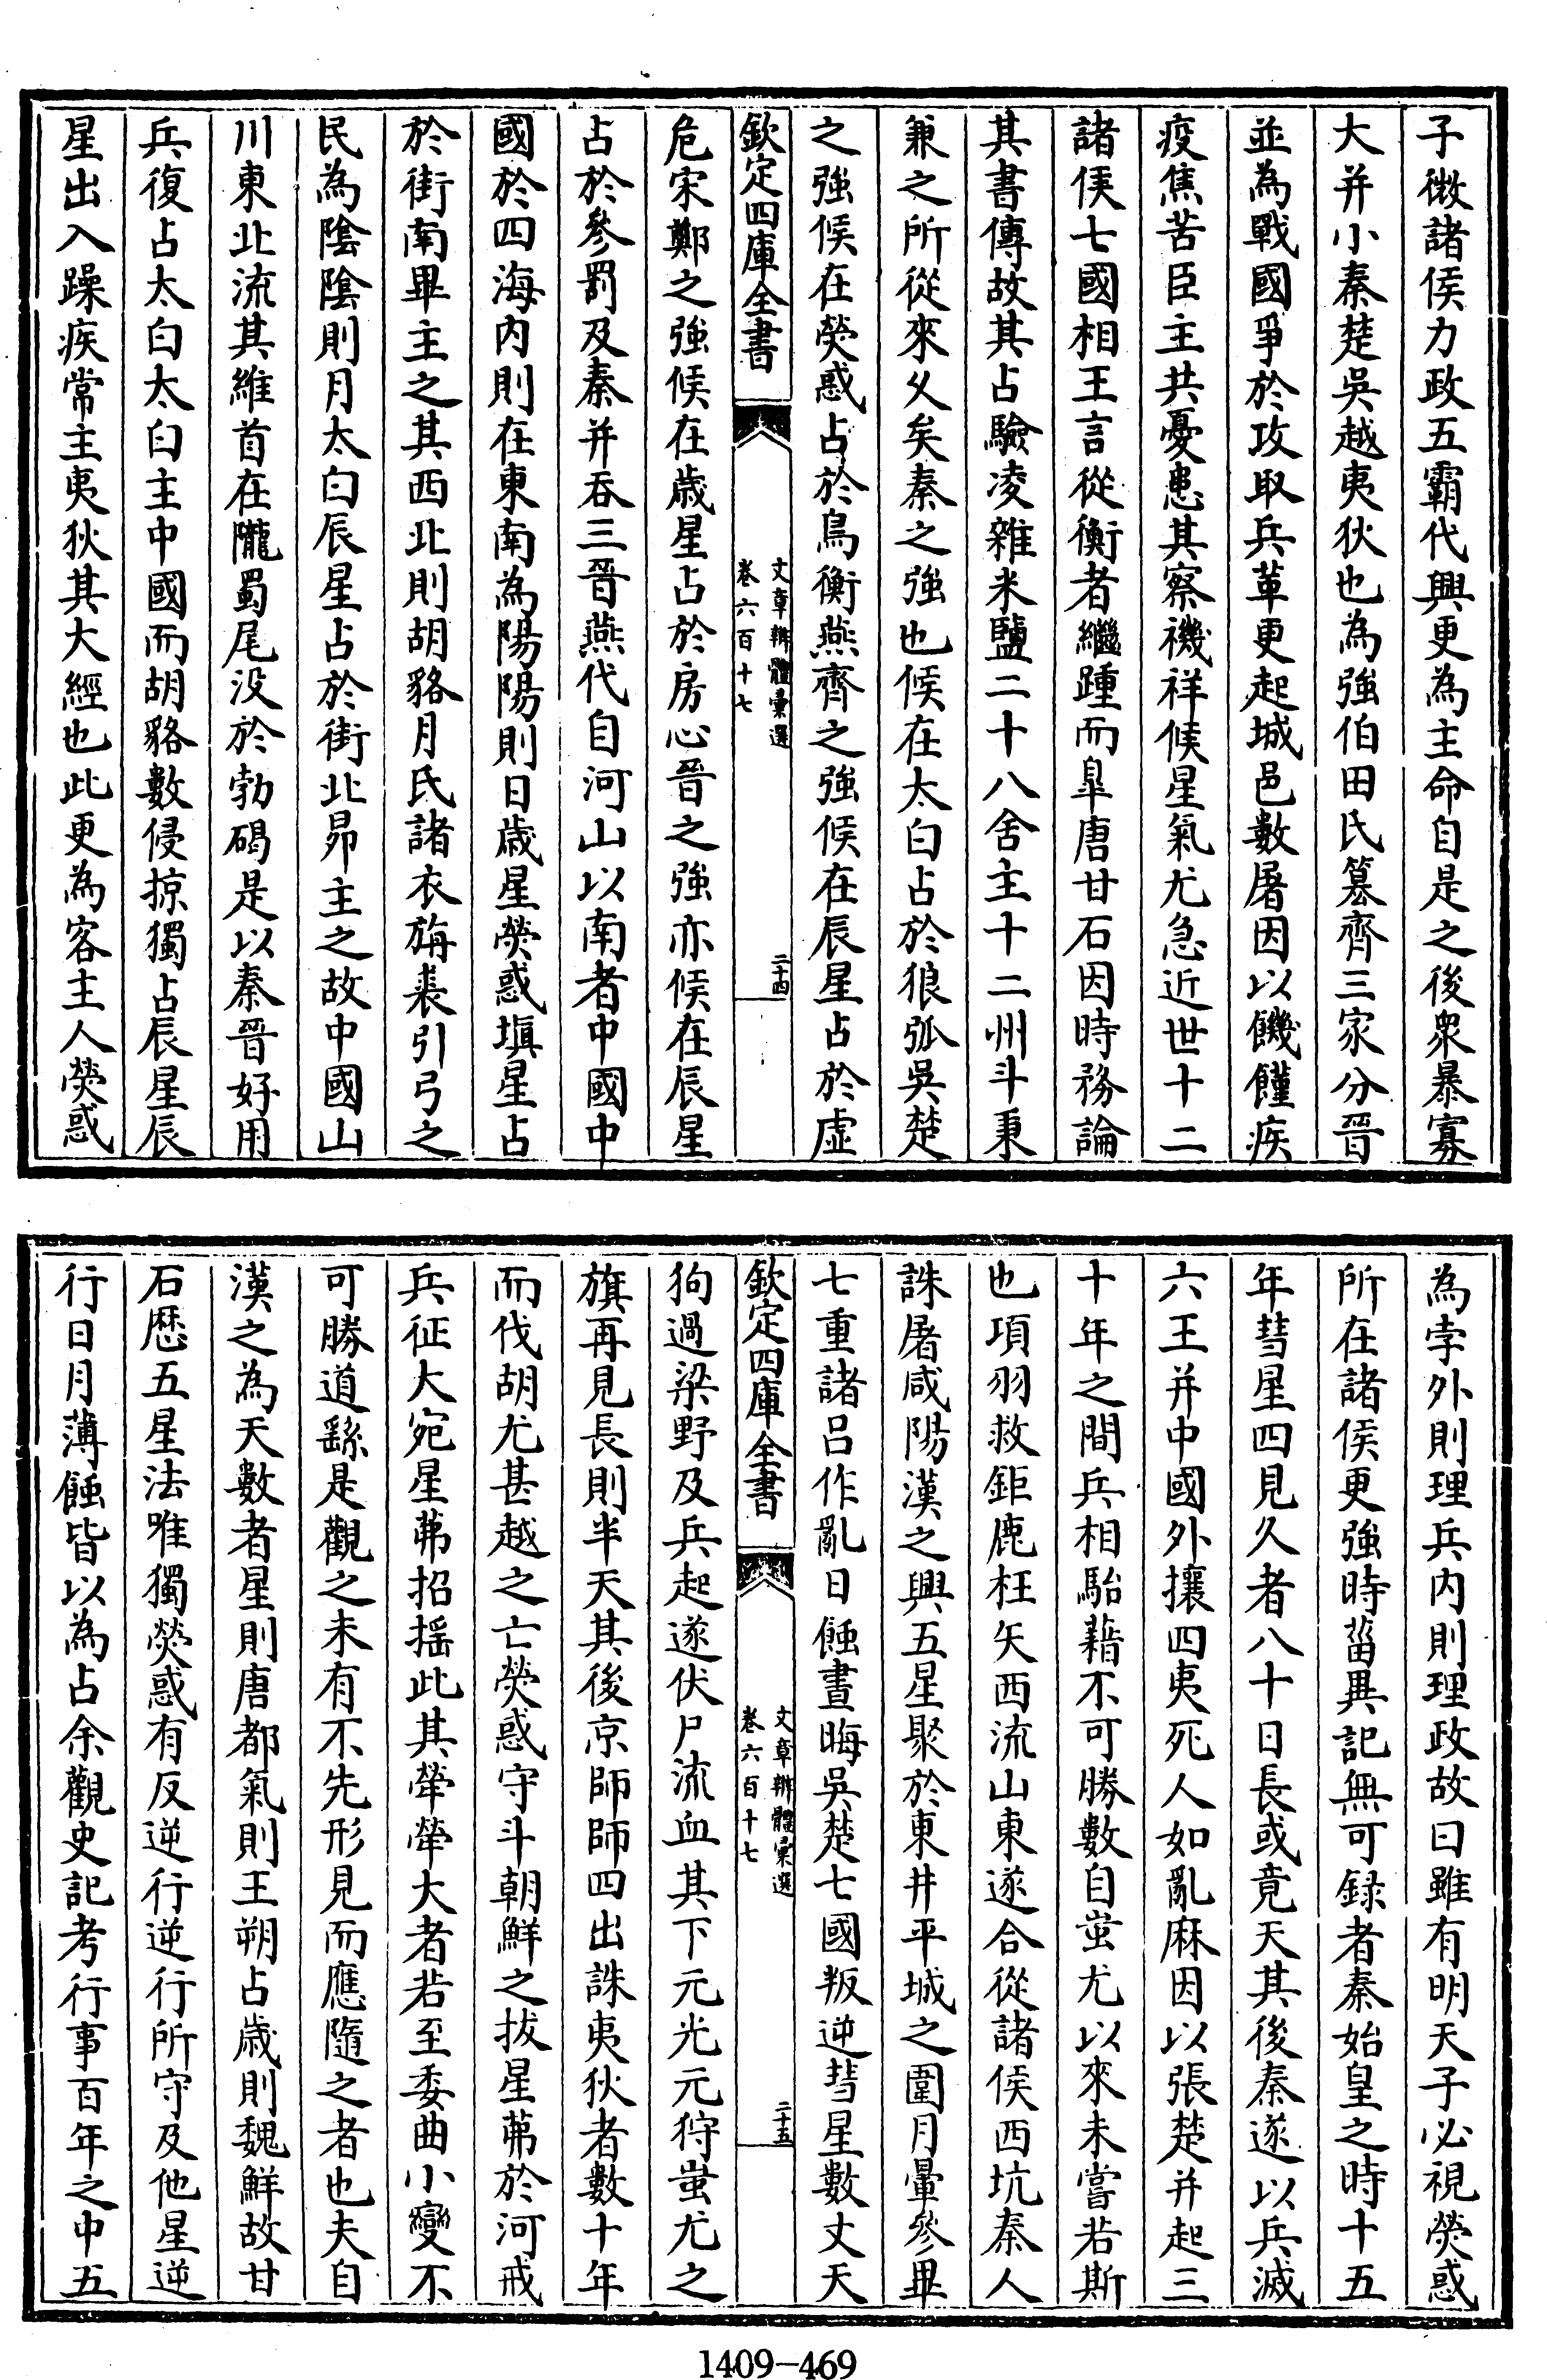 子微諸侯力政五霸代興更為主命自是之後衆暴寡
大并小秦楚吳越夷狄也為強伯田氏簒齊三家分晉
並為戰國爭於攻取兵革更起城邑數屠因以饑饉疾
疫焦苦臣主共憂患其察禨祥候星氣尤急近世十二
諸侯七國相王言從衡者繼踵而臯唐甘石因時務論
其書傳故其占驗凌雜米鹽二十八舍主十二州斗秉
兼之所從來乆矣秦之強也候在太白占於狼弧吳楚
之強候在熒惑占於鳥衡燕齊之強候在辰星占於虛
欽定四庫全書
文章辨體彚選
卷六百十七
二十四
危宋鄭之強候在歳星占於房心晉之強亦候在辰星
占於參罰及秦并吞三晉燕代自河山以南者中國中
國於四海内則在東南為陽陽則日歳星熒惑塡星占
於街南畢主之其西北則胡貉月氏諸衣旃裘引弓之
民為隂隂則月太白辰星占於街北昴主之故中國山
川東北流其維首在隴蜀尾沒於勃碣是以秦晉好用
兵復占太白太白主中國而胡貉數侵掠獨占辰星辰
星出入躁疾常主夷狄其大經也此更為客主人熒惑
為孛外則理兵内則理政故曰雖有明天子必視熒惑
所在諸侯更強時菑異記無可録者秦始皇之時十五
年彗星四見久者八十日長或竟天其後秦遂以兵滅
六王并中國外攘四夷死人如亂麻因以張楚并起三
十年之間兵相駘藉不可勝數自蚩尤以來未嘗若斯
也項羽救鉅鹿枉矢西流山東遂合從諸侯西坑秦人
誅屠咸陽漢之興五星聚於東井平城之圍月暈參畢
七重諸呂作亂日蝕晝晦吳楚七國叛逆彗星數丈天
欽定四庫全書
文章辨體彚選
卷六百十七
二十五
狗過梁野及兵起遂伏尸流血其下元光元狩蚩尤之
旗再見長則半天其後京師師四出誅夷狄者數十年
而伐胡尤甚越之亡熒惑守斗朝鮮之拔星茀於河戒
兵征大宛星茀招揺此其犖犖大者若至委曲小變不
可勝道繇是觀之未有不先形見而應隨之者也夫自
漢之為天數者星則唐都氣則王朔占歳則魏鮮故甘
石厯五星法唯獨熒惑有反逆行逆行所守及他星逆
行日月薄蝕皆以為占余觀史記考行事百年之中五
1409-469